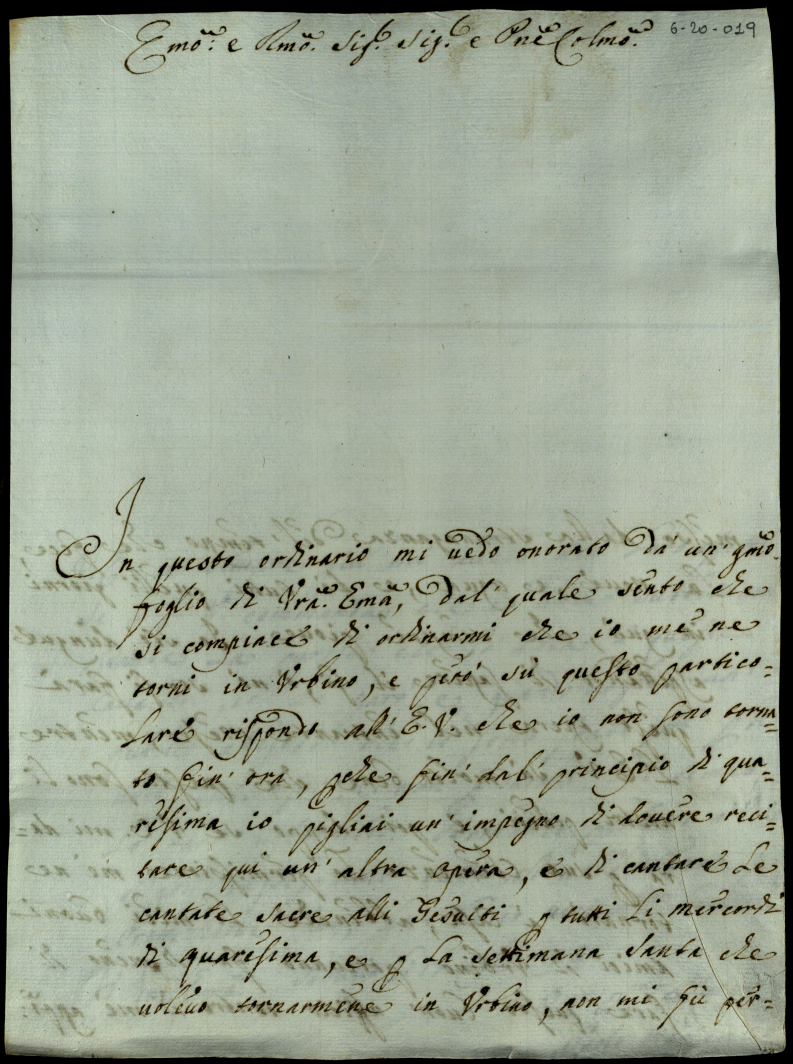 6-20-019
Emõ: e Rmõ. Sig.r Sig.r e Pnẽ Colmõ.
In questo ordinario mi uedo onorato da' un' gmõ.
foglio di Vrã. Emã, dal' quale sento che
si compiace di ordinarmi che io me ne
torni in Vrbino, e però sù questo partico=
lare rispondo all' E. V. che io non sono torna=
to fin' ora, pche fin' dal' principio di qua=
resima io pigliai un' impegno di douere reci=
tare qui un' altra opera, e di cantare le
cantate sacre alli Gesuiti p tutti li mercordi
di quaresima, e p la settimana santa che
uoleuo tornarmene in Vrbino, non mi fù per=